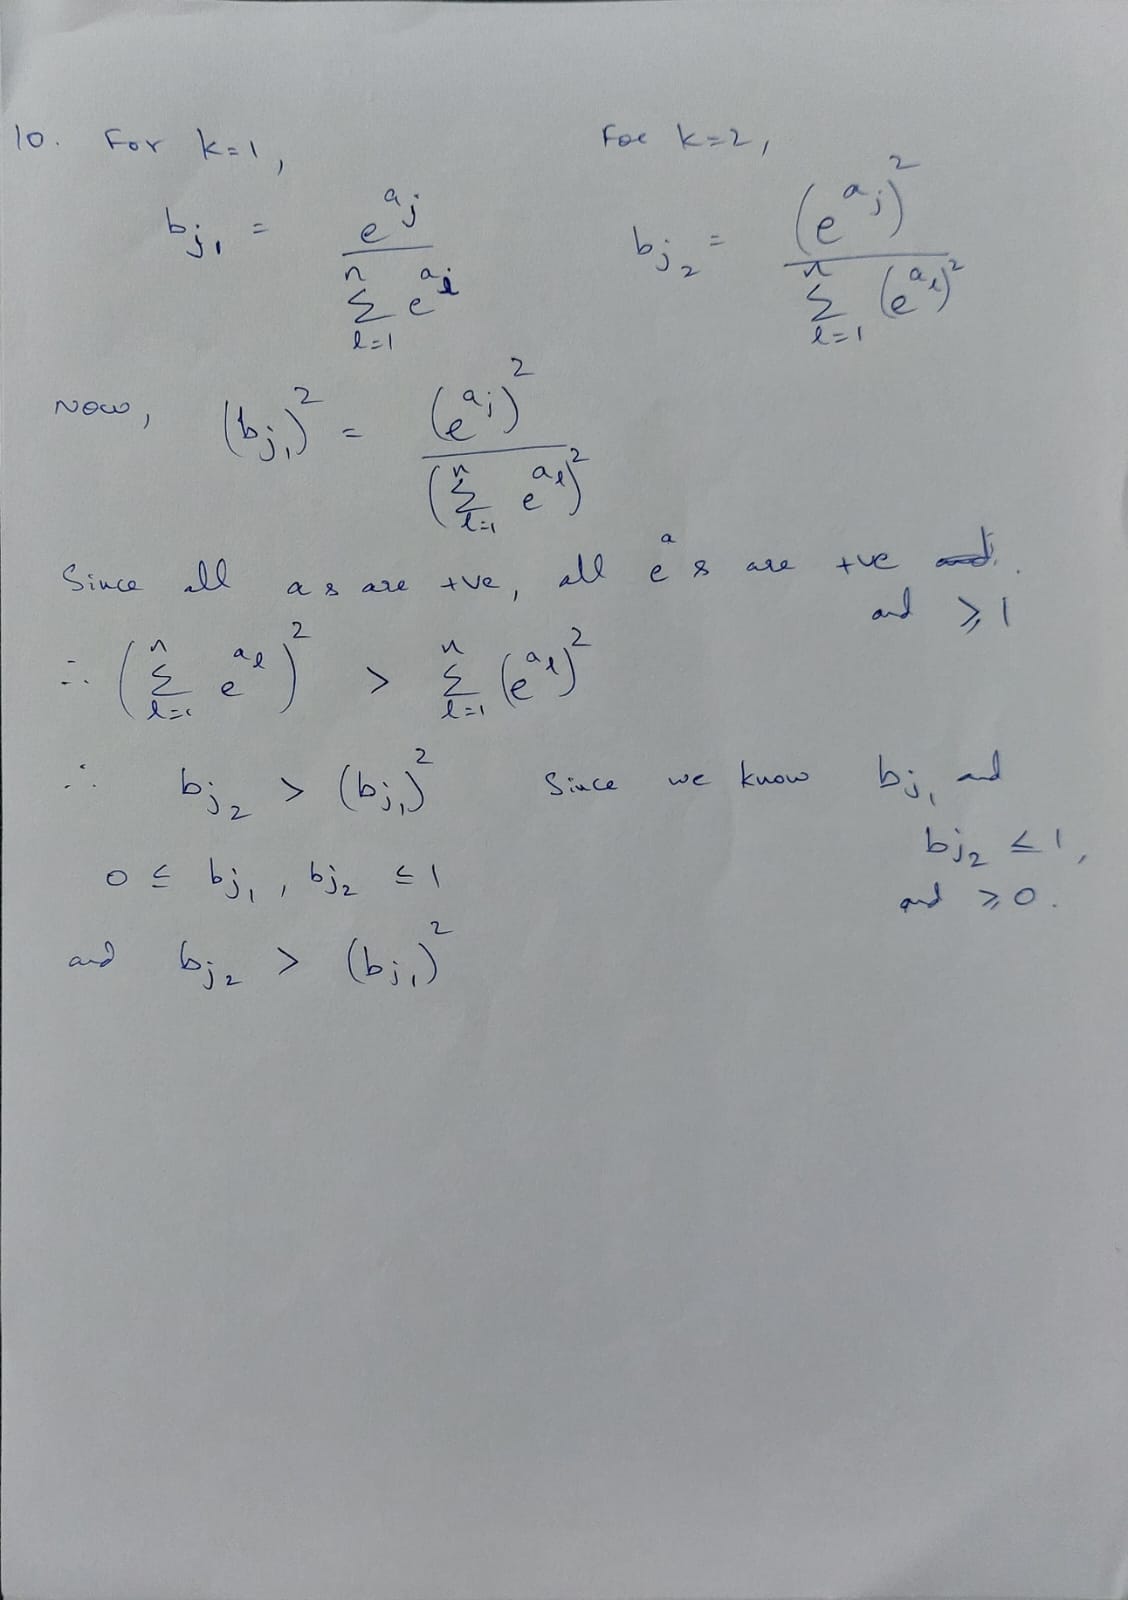 10. For k=1, For k=2,
b_{j_1} = e^{a_j} / \sum_{l=1}^{n} e^{a_l} b_{j_2} = (e^{a_j})^2 / \sum_{l=1}^{n} (e^{a_l})^2
Now, (b_{j_1})^2 = (e^{a_j})^2 / (\sum_{l=1}^{n} e^{a_l})^2
Since all a s are +ve, all e^a s are +ve
and ≥ 1
∴ (\sum_{l=1}^{n} e^{a_l})^2 > \sum_{l=1}^{n} (e^{a_l})^2
∴ b_{j_2} > (b_{j_1})^2 Since we know b_{j_1} and
b_{j_2} ≤ 1,
0 ≤ b_{j_1}, b_{j_2} ≤ 1
and ≥ 0.
and b_{j_2} > (b_{j_1})^2